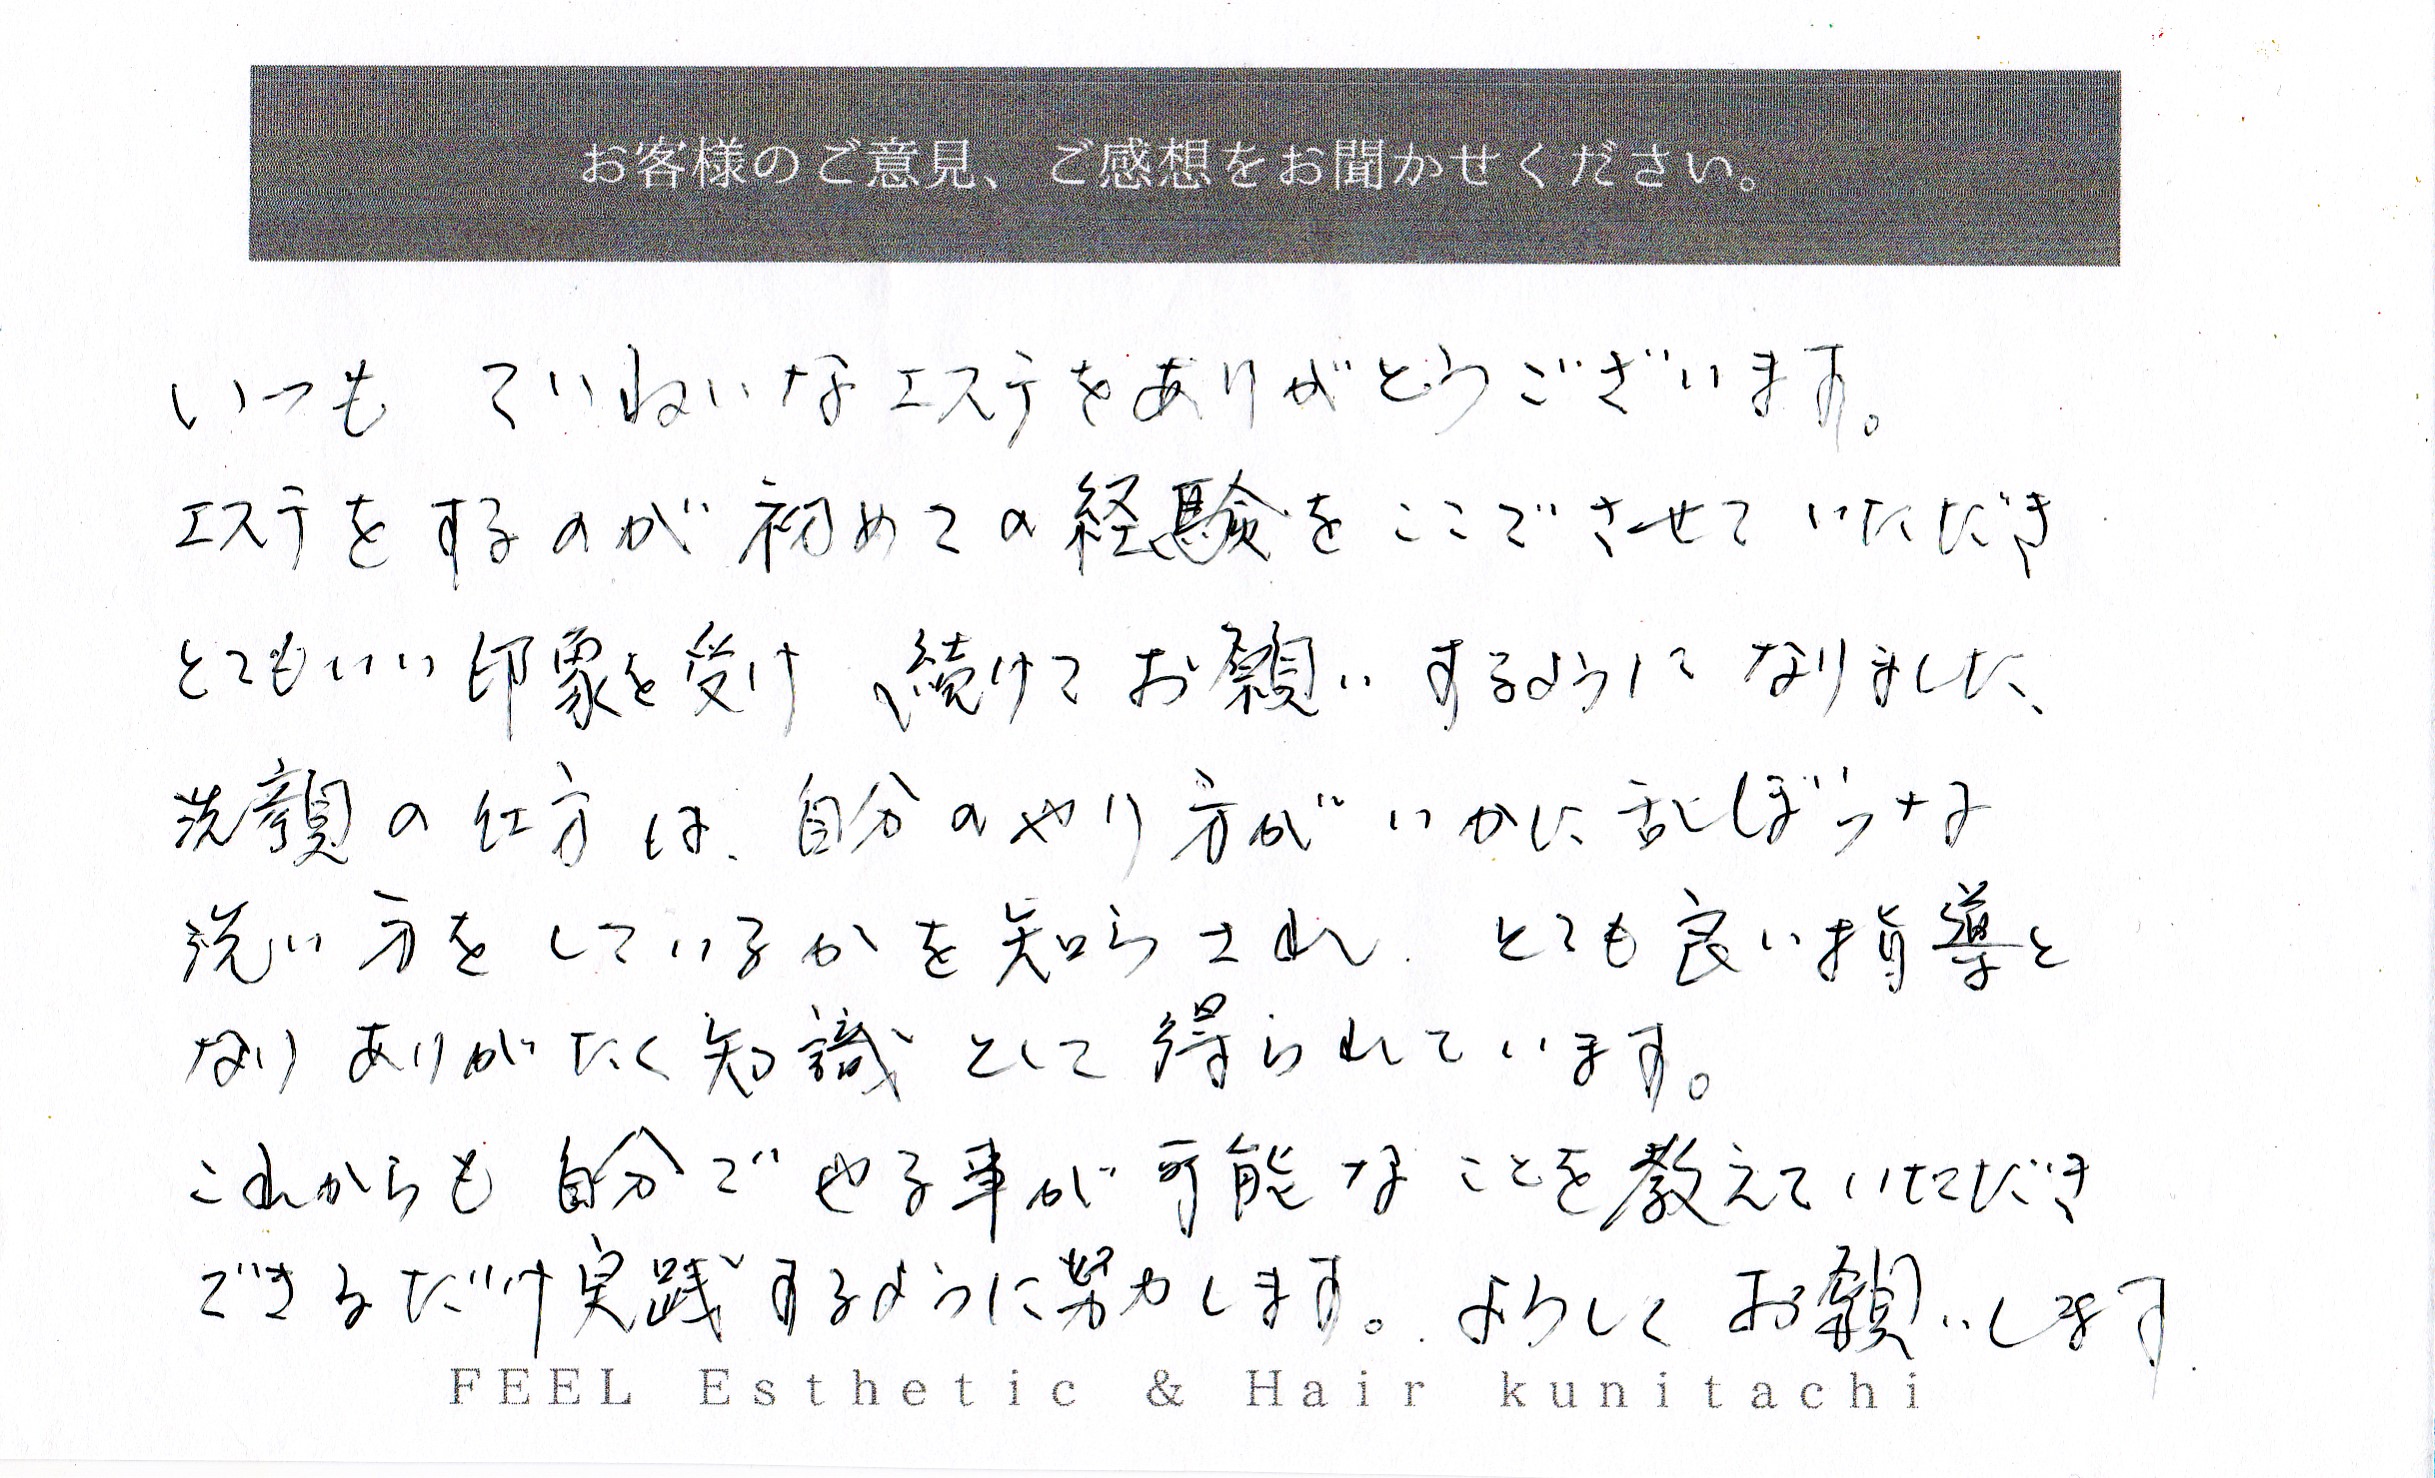 お客様のご意見、ご感想をお聞かせください。
いつも ていねいなエステをありがとうございます。
エステをするのが初めての経験をここでさせていただき
とてもいい印象を受け、続けてお願いするようになりました、
洗顔の仕方は、自分のやり方がいかに乱ぼうな
洗い方をしているかを知らされ、とても良い指導と
なりありがたく知識として得られています。
これからも自分でやる事が可能なことを教えていただき
できるだけ実践するように努力します。よろしくお願いします
FEEL Esthetic & Hair kunitachi